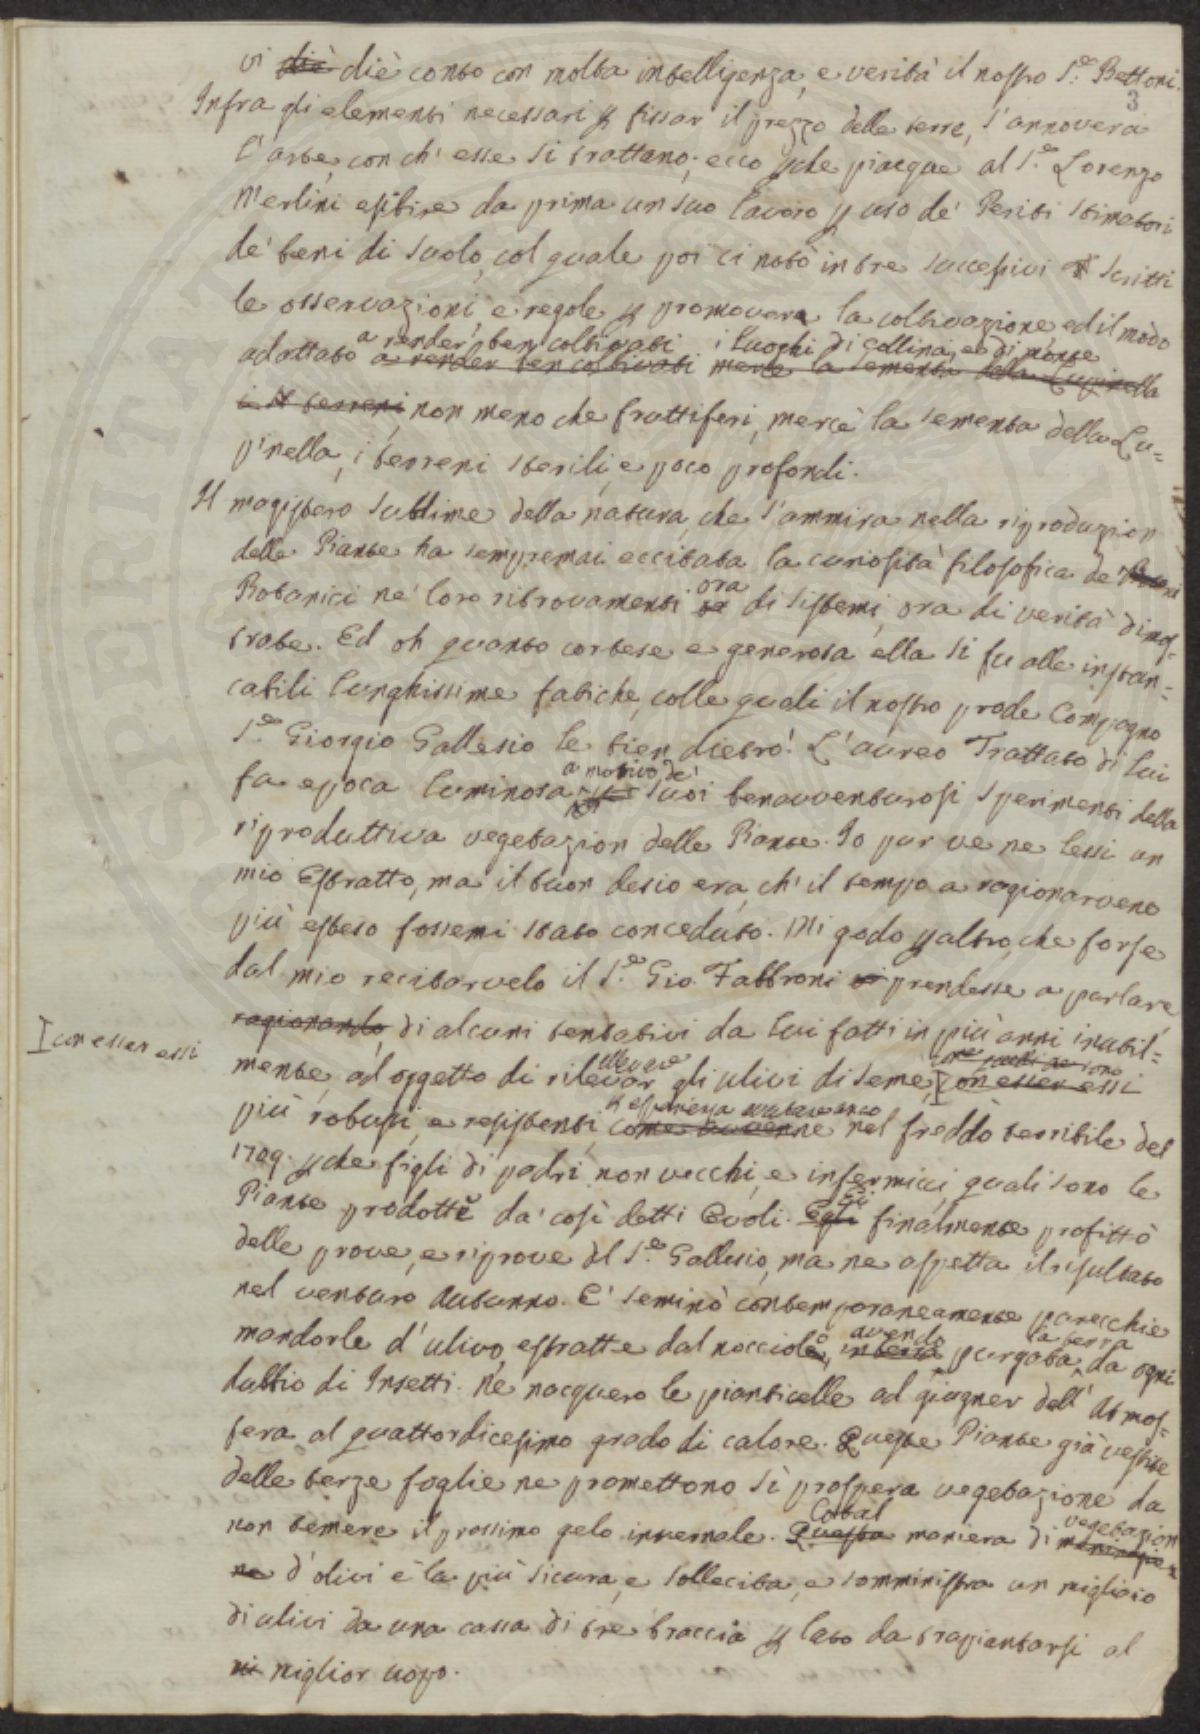 3
vi diè diè conto con molta intelligenza, e verità il nostro S.e Bettoni.
Infra gli elementi necessari p fissar il prezzo delle terre, s'annovera
l'arte, con ch'esse si trattano; ecco pche piacque al S.e Lorenzo
Merlini esibire da prima un suo lavoro p uso de' Periti stimatori
de' beni di suolo, col quale poi ci notò in tre successivi scritti
le osservazioni, e regole p promovere la coltivazione, ed il modo
a render ben coltivati i luoghi di collina, e di monte
adattato a render ben coltivati mercè la sementa della Lupinella
i terreni, non meno che fruttiferi, mercè la sementa della Lu=
pinella, i terreni sterili, e poco profondi.
Il magistero sublime della natura, che s'ammira nella riproduzion
delle Piante ha sempremai eccitata la curiosità filosofica de'
Botanici ne' loro ritrovamenti ora di sistemi, ora di verità dimos=
trate. Ed oh quanto cortese e generosa ella si fu alle instan=
cabili lunghissime fatiche, colle quali il nostro prode Compagno
S.e Giorgio Gallesio le tien dietro! L'aureo Trattato di lui
fa epoca luminosa a motivo de' suoi benavventurosi sperimenti della
riproduttiva vegetazion delle Piante. Io pur ve ne lessi un
mio Estratto, ma il buon desio era, ch'il tempo a ragionarvene
più esteso fossemi stato conceduto. Mi godo paltro, che forse
dal mio recitarvelo il S.e Gio. Fabbroni prendesse a parlare
ragionando di alcuni tentativi da lui fatti in più anni inutil=
I con esser essi
mente, ad oggetto di rilevar gli ulivi di seme, con esser essi
più robusti, e resistenti, come avvenne nel freddo terribile del
1709. pche figli di padri non vecchi, e infermicci, quali sono le
Piante prodotte da' così detti Evoli. Egli Ei finalmente profittò
delle prove, e riprove del S.e Gallesio, ma ne aspetta il risultato
nel venturo Autunno. E' seminò contemporaneamente parecchie
mandorle d'ulivo, estratte dal nocciolo, avendo purgata la terra da ogni
dubbio di Insetti. Ne nacquero le pianticelle al giugner dell' Atmos=
fera al quattordicesimo grado di calore. Queste Piante già vestite
delle terze foglie ne promettono sì prospera vegetazione da
non temere il prossimo gelo invernale. Questa Cotal maniera di vegetazion
ne d'olivi è la più sicura, e sollecita, e somministra un migliaio
di ulivi da una cassa di tre braccia p lato da trapiantarsi al
miglior uopo.